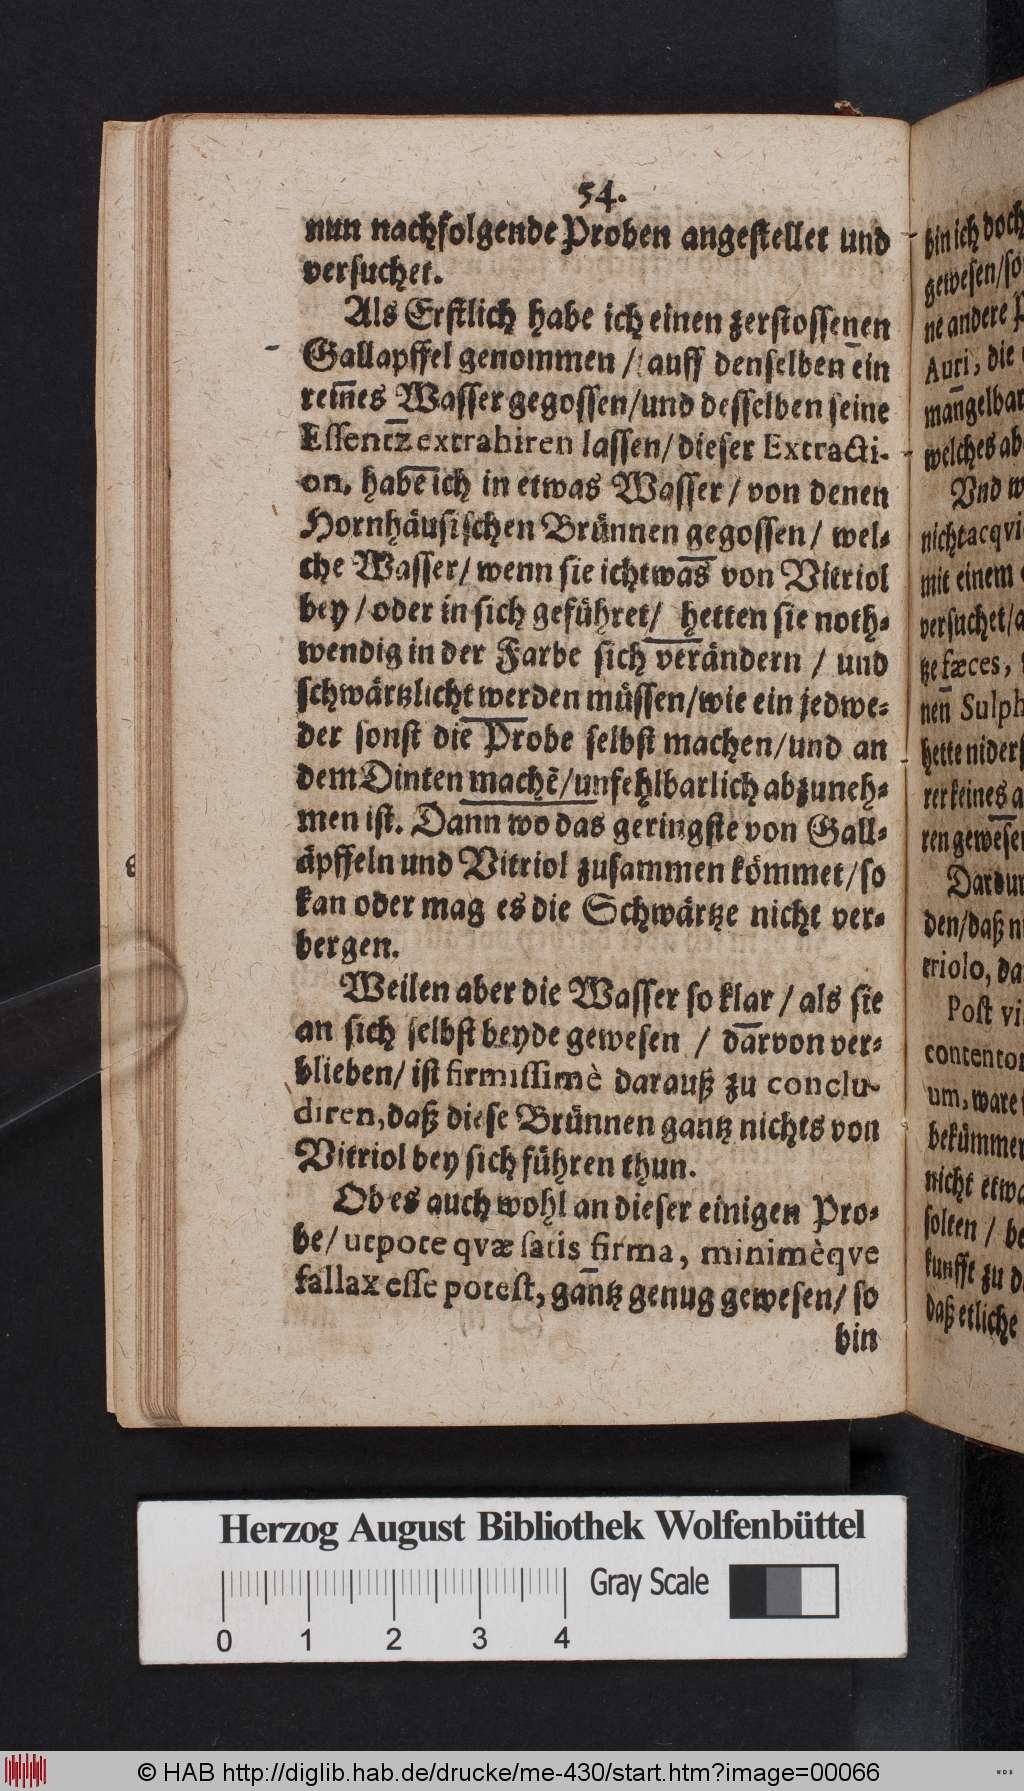 54.
nun nachfolgende Proben angestellet und
versuchet.
Als Erstlich habe ich einen zerstossenen
Gallapffel genommen / auff denselben ein
reines Wasser gegossen / und desselben seine
Essentz extrahiren lassen / dieser Extracti-
on, habe ich in etwas Wasser / von denen
Hornhäusischen Brünnen gegossen / wel-
che Wasser / wenn sie ichtwas von Vitriol
bey / oder in sich geführet / hetten sie noth-
wendig in der Farbe sich verändern / und
schwärtzlicht werden müssen / wie ein jedwe-
der sonst die Probe selbst machen / und an
dem Dinten machẽ / unfehlbarlich abzuneh-
men ist. Dann wo das geringste von Gall-
äpffeln und Vitriol zusammen kömmet / so
kan oder mag es die Schwärtze nicht ver-
bergen.
Weilen aber die Wasser so klar / als sie
an sich selbst beyde gewesen / darvon ver-
blieben / ist firmissimè darauß zu conclu-
diren, daß diese Brünnen gantz nichts von
Vitriol bey sich führen thun.
Ob es auch wohl an dieser einigen Pro-
be / utpote qvæ satis firma, minimèqve
fallax esse potest, gantz genug gewesen / so
bin
bin ich doch
gewesen / so
ne andere
Auri, die
mangelbar
welches ab
Und
nicht acqvi
mit einem
versuchet /
tze fæces,
nen Sulph
hette niders
rer keines a
ren gewesen
Dardur
den / daß
triolo, da
Post vi
contentor
um, ware
bekümmer
nicht etwa
solten / be
kunfft zu
daß etliche
Herzog August Bibliothek Wolfenbüttel
Gray Scale
0 1 2 3 4
© HAB http://diglib.hab.de/drucke/me-430/start.htm?image=00066